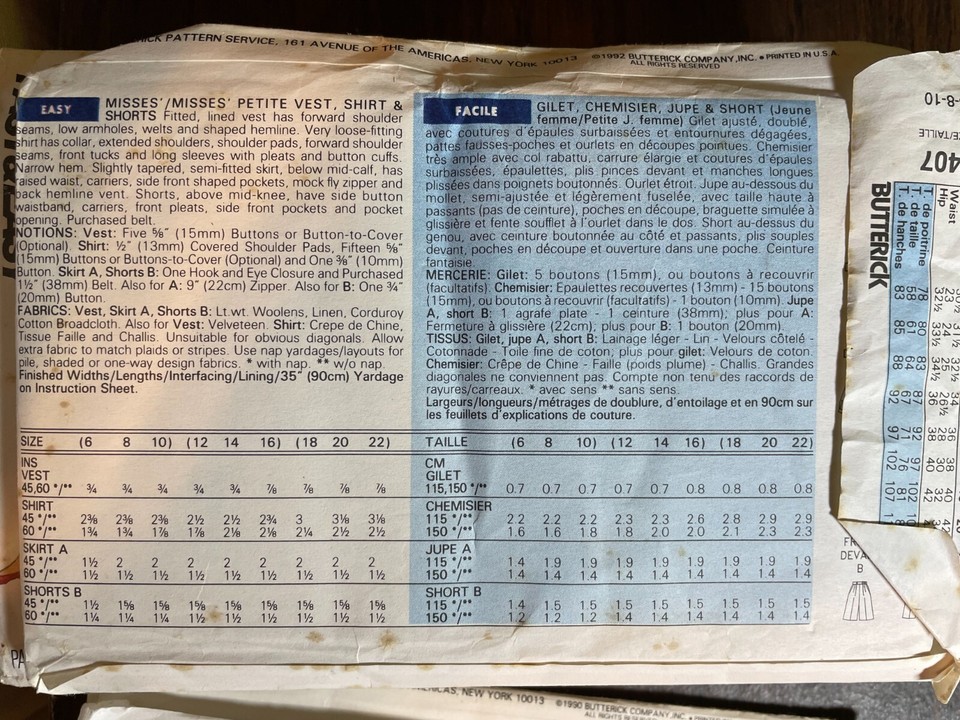 ICK PATTERN SERVICE, 161 AVENUE OF THE AMERICAS, NEW YORK 10013 ©1992 BUTTERICK COMPANY, INC. • PRINTED IN U.S.A.
ALL RIGHTS RESERVED
EASY
MISSES'/MISSES' PETITE VEST, SHIRT &
SHORTS Fitted, lined vest has forward shoulder
seams, low armholes, welts and shaped hemline. Very loose-fitting
shirt has collar, extended shoulders, shoulder pads, forward shoulder
seams, front tucks and long sleeves with pleats and button cuffs.
Narrow hem. Slightly tapered, semi-fitted skirt, below mid-calf, has
raised waist, carriers, side front shaped pockets, mock fly zipper and
back hemline vent. Shorts, above mid-knee, have side button
waistband, carriers, front pleats, side front pockets and pocket
opening. Purchased belt.
NOTIONS: Vest: Five ⅝" (15mm) Buttons or Button-to-Cover
(Optional). Shirt: ½" (13mm) Covered Shoulder Pads, Fifteen ⅝"
(15mm) Buttons or Buttons-to-Cover (Optional) and One ⅜" (10mm)
Button. Skirt A, Shorts B: One Hook and Eye Closure and Purchased
1½" (38mm) Belt. Also for A: 9" (22cm) Zipper. Also for B: One ¾"
(20mm) Button.
FABRICS: Vest, Skirt A, Shorts B: Lt.wt. Woolens, Linen, Corduroy
Cotton Broadcloth. Also for Vest: Velveteen. Shirt: Crepe de Chine,
Tissue Faille and Challis. Unsuitable for obvious diagonals. Allow
extra fabric to match plaids or stripes. Use nap yardages/layouts for
pile, shaded or one-way design fabrics. * with nap. ** w/o nap.
Finished Widths/Lengths/Interfacing/Lining/35" (90cm) Yardage
on Instruction Sheet.
SIZE (6 8 10) (12 14 16) (18 20 22)
INS
VEST
45,60 */** ¾ ¾ ¾ ¾ ¾ ⅞ ⅞ ⅞ ⅞
SHIRT
45 */** 2⅜ 2⅜ 2⅜ 2½ 2½ 2¾ 3 3⅛ 3⅛
60 */** 1¾ 1¾ 1⅞ 2⅛ 2⅛ 2¼ 2½ 2½
SKIRT A
45 */** 1½ 2 2 2 2 2 2 2 2
60 */** 1½ 1½ 1½ 1½ 1½ 1½ 1½ 1½ 1½
SHORTS B
45 */** 1½ 1⅝ 1⅝ 1⅝ 1⅝ 1⅝ 1⅝ 1⅝ 1⅝
60 */** 1¼ 1¼ 1¼ 1½ 1½ 1½ 1½ 1½ 1½
FACILE
GILET, CHEMISIER, JUPE & SHORT (Jeune
femme/Petite J. femme) Gilet ajusté, doublé,
avec coutures d'épaules surbaissées et entournures dégagées,
pattes fausses-poches et ourlets en découpes pointues. Chemisier
très ample avec col rabattu, carrure élargie et coutures d'épaules
surbaissées, épaulettes, plis pinces devant et manches longues
plissées dans poignets boutonnés. Ourlet étroit. Jupe au-dessous du
mollet, semi-ajustée et légèrement fuselée, avec taille haute à
passants (pas de ceinture), poches en découpe, braguette simulée à
glissière et fente soufflet à l'ourlet dans le dos. Short au-dessus du
genou, avec ceinture boutonnée au côté et passants, plis souples
devant, poches en découpe et ouverture dans une poche. Ceinture
fantaisie.
MERCERIE: Gilet: 5 boutons (15mm), ou boutons à recouvrir
(facultatifs). Chemisier: Epaulettes recouvertes (13mm) - 15 boutons
(15mm), ou boutons à recouvrir (facultatifs) - 1 bouton (10mm). Jupe
A, short B: 1 agrafe plate - 1 ceinture (38mm); plus pour A:
Fermeture à glissière (22cm), plus pour B: 1 bouton (20mm).
TISSUS: Gilet, jupe A, short B: Lainage léger - Lin - Velours côtelé -
Cotonnade - Toile fine de coton; plus pour gilet: Velours de coton.
Chemisier: Crêpe de Chine - Faille (poids plume) - Challis. Grandes
diagonales ne conviennent pas. Compte non tenu des raccords de
rayures/carreaux. * avec sens ** sans sens.
Largeurs/longueurs/métrages de doublure, d'entoilage et en 90cm sur
les feuilles d'explications de couture.
TAILLE (6 8 10) (12 14 16) (18 20 22)
CM
GILET
115,150 */** 0.7 0.7 0.7 0.7 0.7 0.8 0.8 0.8 0.8
CHEMISIER
115 */** 2.2 2.2 2.2 2.3 2.3 2.6 2.8 2.9 2.9
150 */** 1.6 1.6 1.8 1.8 2.0 2.0 2.1 2.3 2.3
JUPE A
115 */** 1.4 1.9 1.9 1.9 1.9 1.9 1.9 1.9 1.9
150 */** 1.4 1.4 1.4 1.4 1.4 1.4 1.4 1.4 1.4
SHORT B
115 */** 1.4 1.5 1.5 1.5 1.5 1.5 1.5 1.5 1.5
150 */** 1.2 1.2 1.2 1.4 1.4 1.4 1.4 1.4 1.4
8-10
TAILLE
407
BUTTERICK
Waist
Hip
T. de poitrine
T. de taille
T. de hanches
FR
DEVA
B
PA
ERICAS, NEW YORK 10013 ©1990 BUTTERICK COMPANY, INC. • PRINTED IN U.S.A.
ALL RIGHTS RESERVED